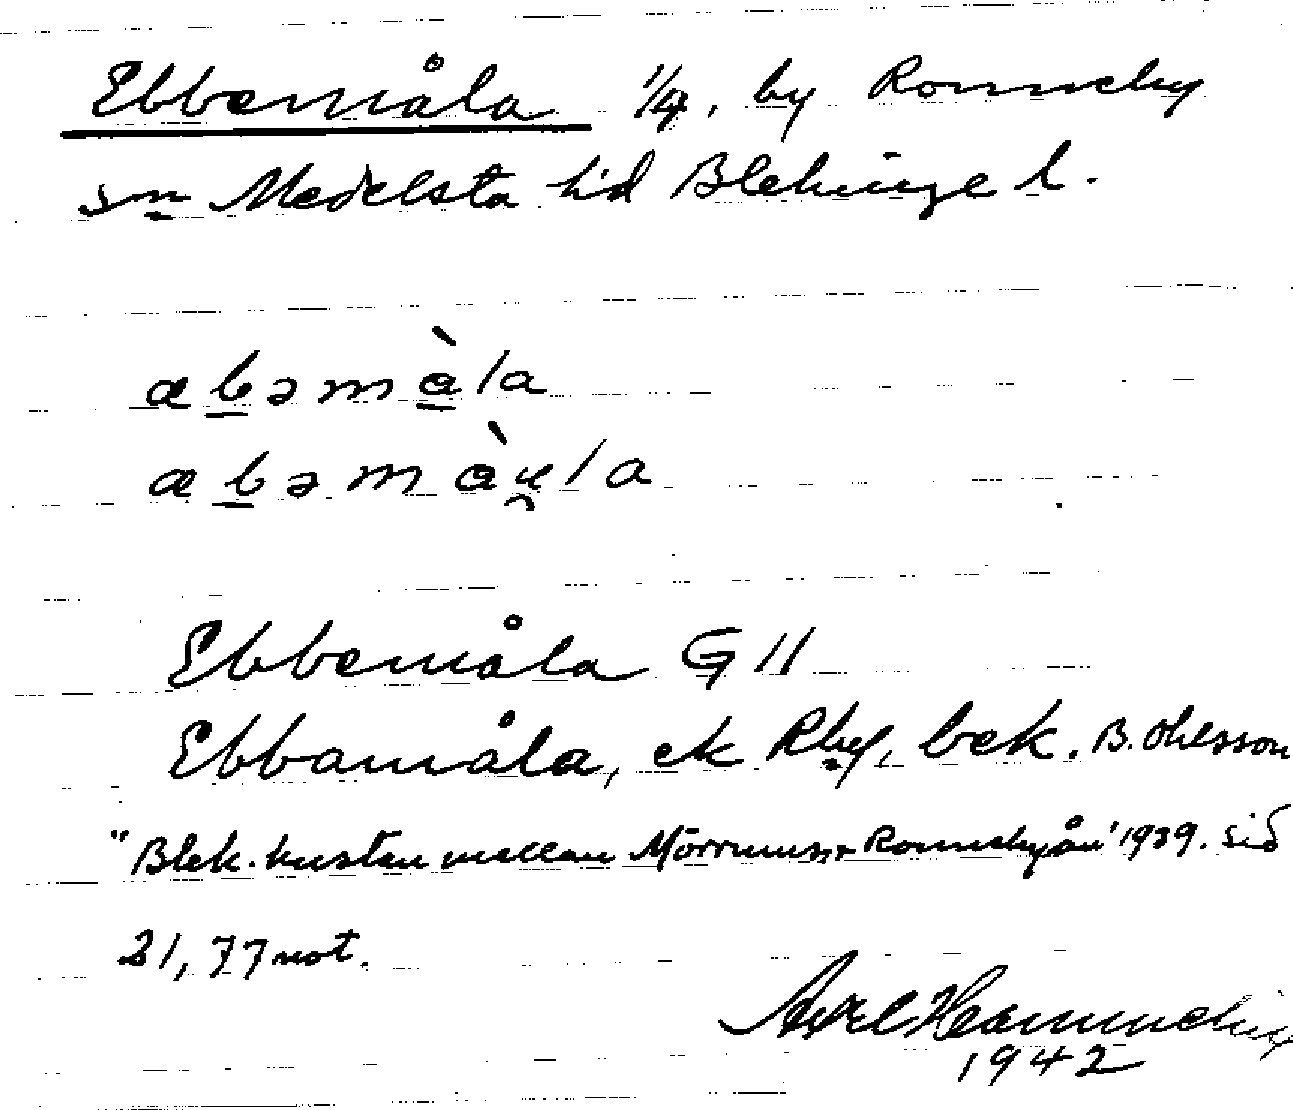 Ebbemåla 1/4, by Ronneby
sn Medelsta hd Blekinge l.
æbəmàla
æbəmàu̯la
Ebbemåla G11
Ebbamåla, ek Rby, bek. B. Ohlsson
"Blek. kusten mellan Mörrums- Ronnebyån" 1939. sid
21, 77 not.
Axel
1942